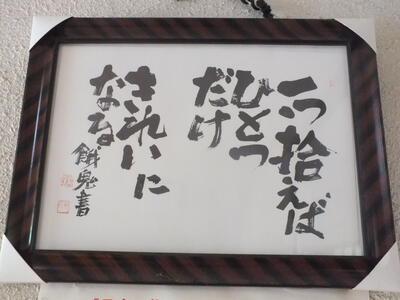 一つ拾えば
ひとつ
だけ
きれいに
なる
餓鬼書